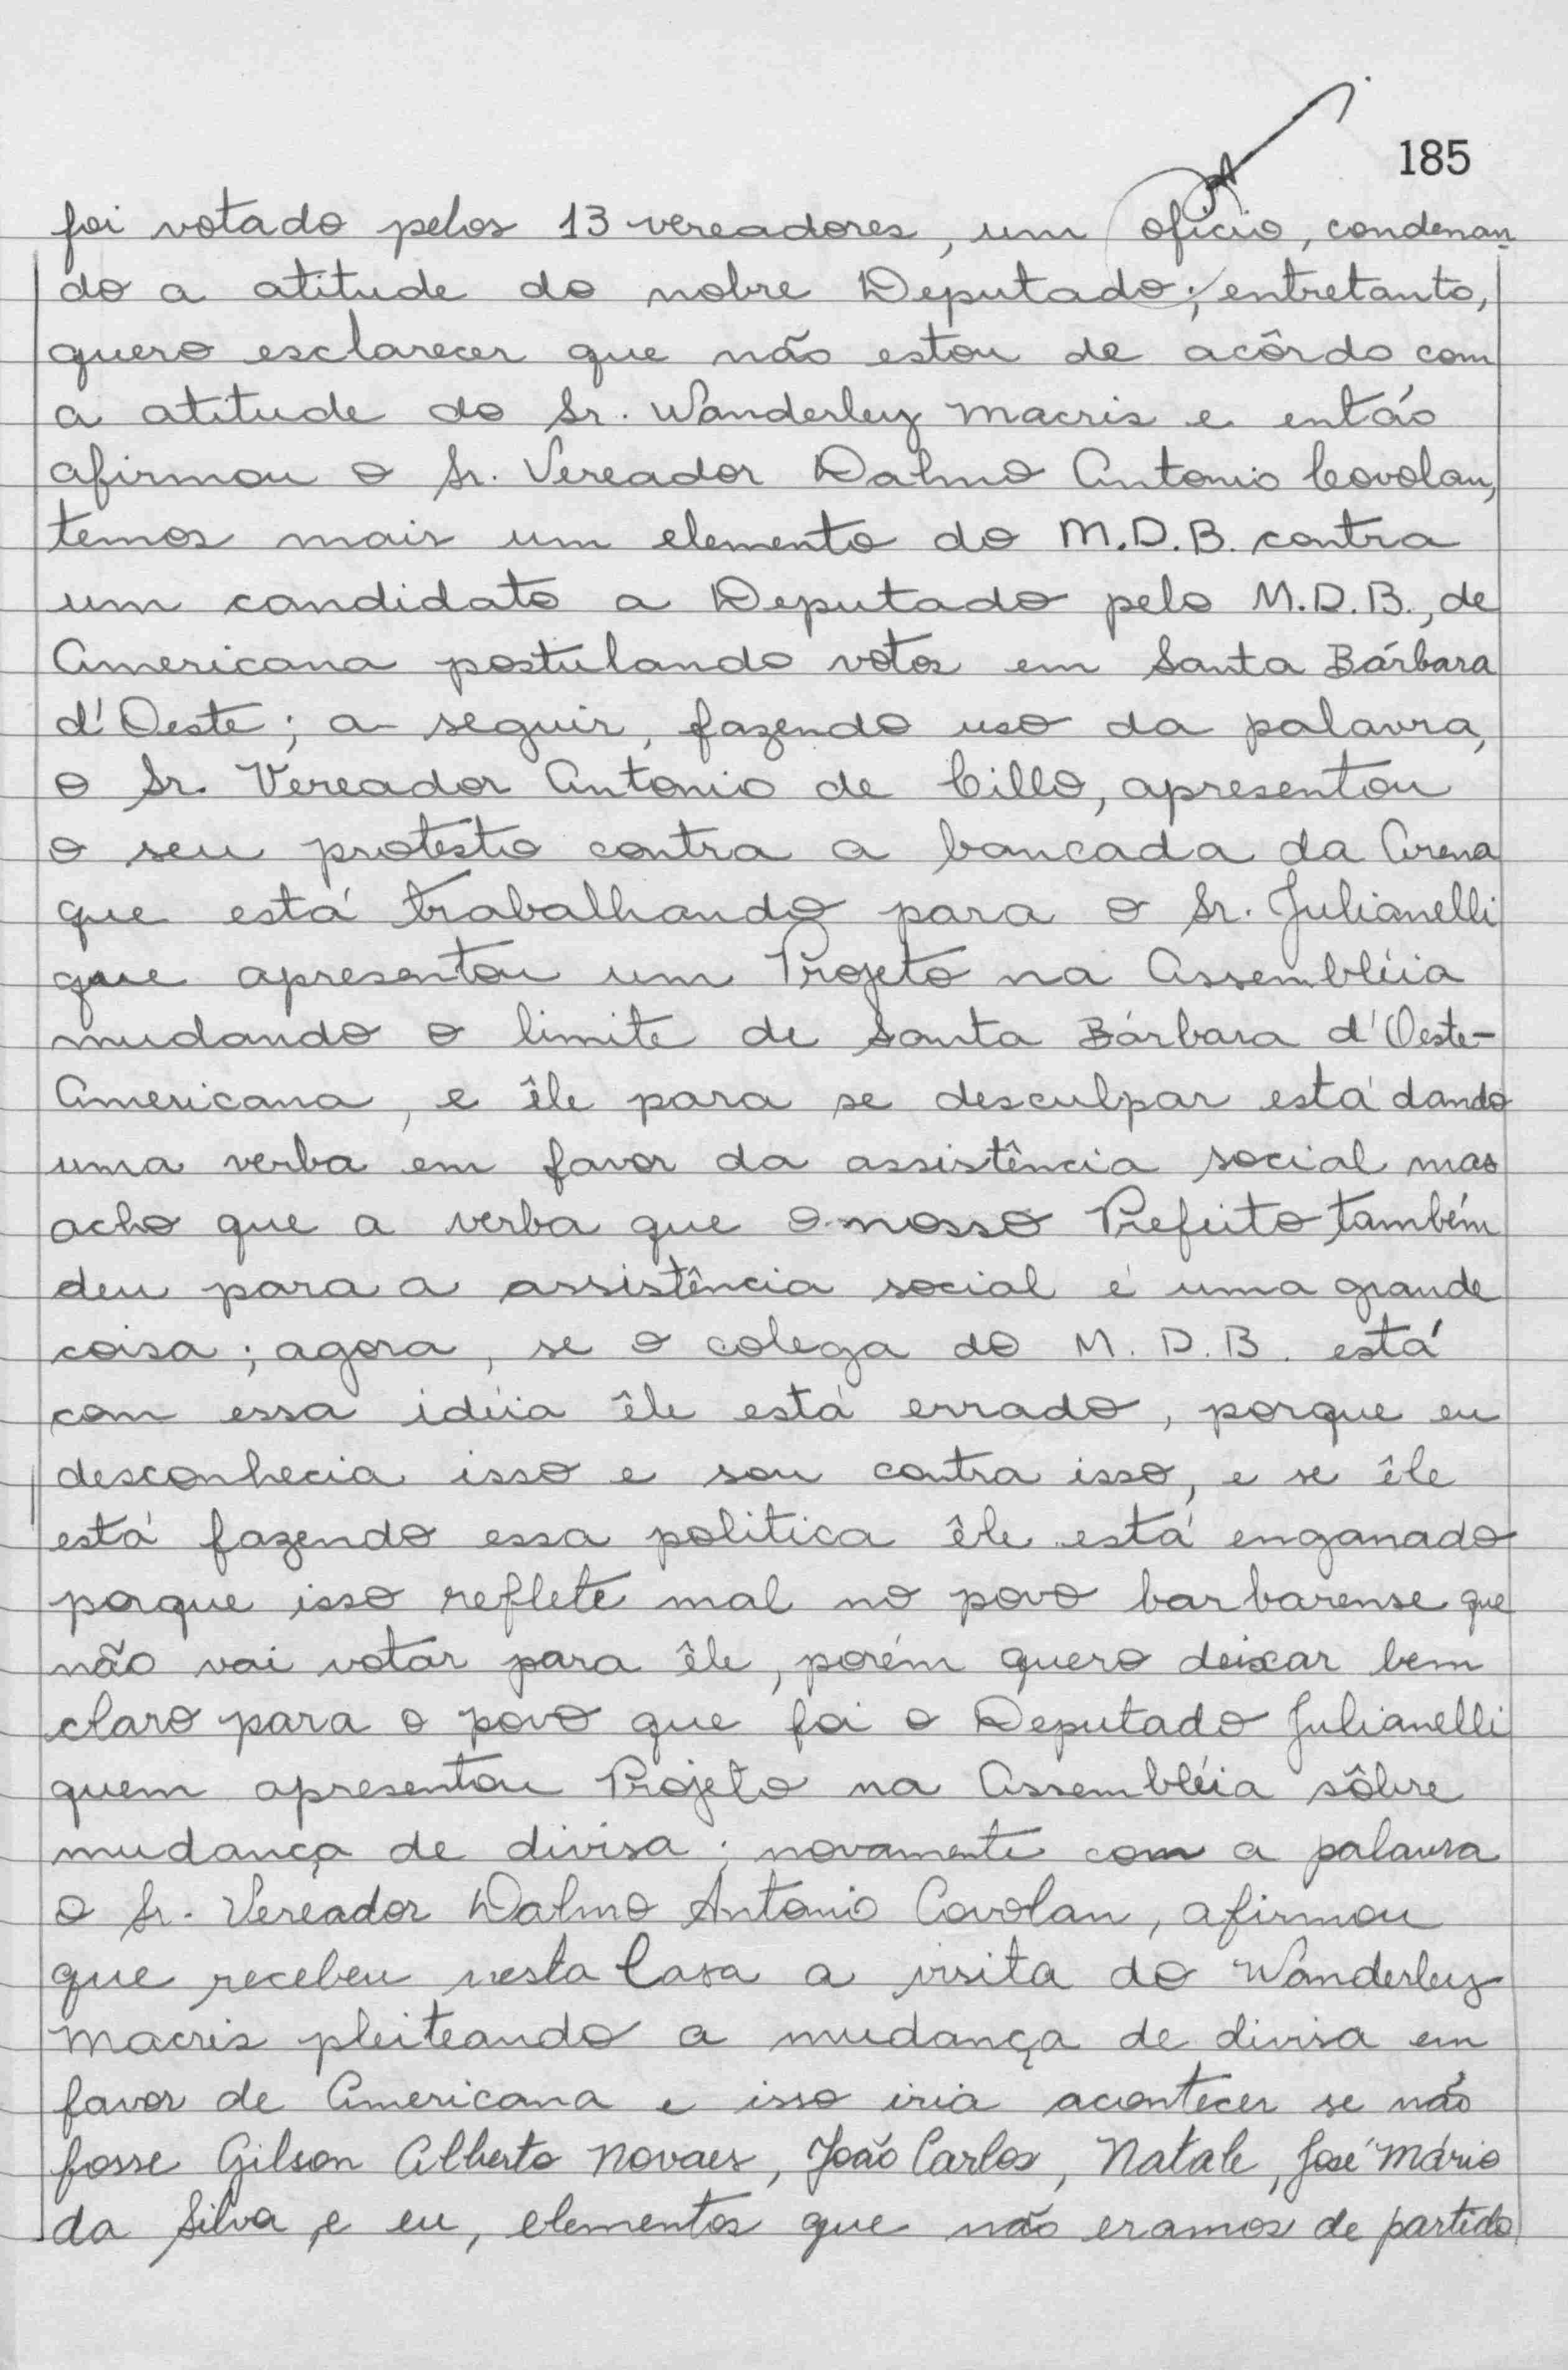 185
foi votado pelos 13 vereadores, um ofício, condenan
do a atitude do nobre Deputado; entretanto,
quero esclarecer que não estou de acôrdo com
a atitude do Sr. Wanderley Macris e então
afirmou o Sr. Vereador Dalmo Antonio Covolan,
temos mais um elemento do M.D.B. contra
um candidato a Deputado pelo M.D.B., de
Americana postulando votos em Santa Bárbara
d'Oeste; a seguir, fazendo uso da palavra,
o Sr. Vereador Antonio de Cillo, apresentou
o seu protesto contra a bancada da Arena
que está trabalhando para o Sr. Julianelli
que apresentou um Projeto na Assembléia
mudando o limite de Santa Bárbara d'Oeste-
Americana, e êle para se desculpar está dando
uma verba em favor da assistência social mas
acho que a verba que o nosso Prefeito também
deu para a assistência social é uma grande
coisa; agora, se o colega do M.D.B. está
com essa idéia êle está errado, porque eu
desconhecia isso e sou contra isso, e se êle
está fazendo essa politica êle está enganado
porque isso reflete mal no povo barbarense que
não vai votar para êle, porém quero deixar bem
claro para o povo que foi o Deputado Julianelli
quem apresentou Projeto na Assembléia sôbre
mudança de divisa; novamente com a palavra
o Sr. Vereador Dalmo Antonio Covolan, afirmou
que recebeu nesta Casa a visita do Wanderley
Macris pleiteando a mudança de divisa em
favor de Americana e isso iria acontecer se não
fosse Gilson Alberto Novaes, João Carlos, Natale, José Mário
da Silva e eu, elementos que não eramos de partido